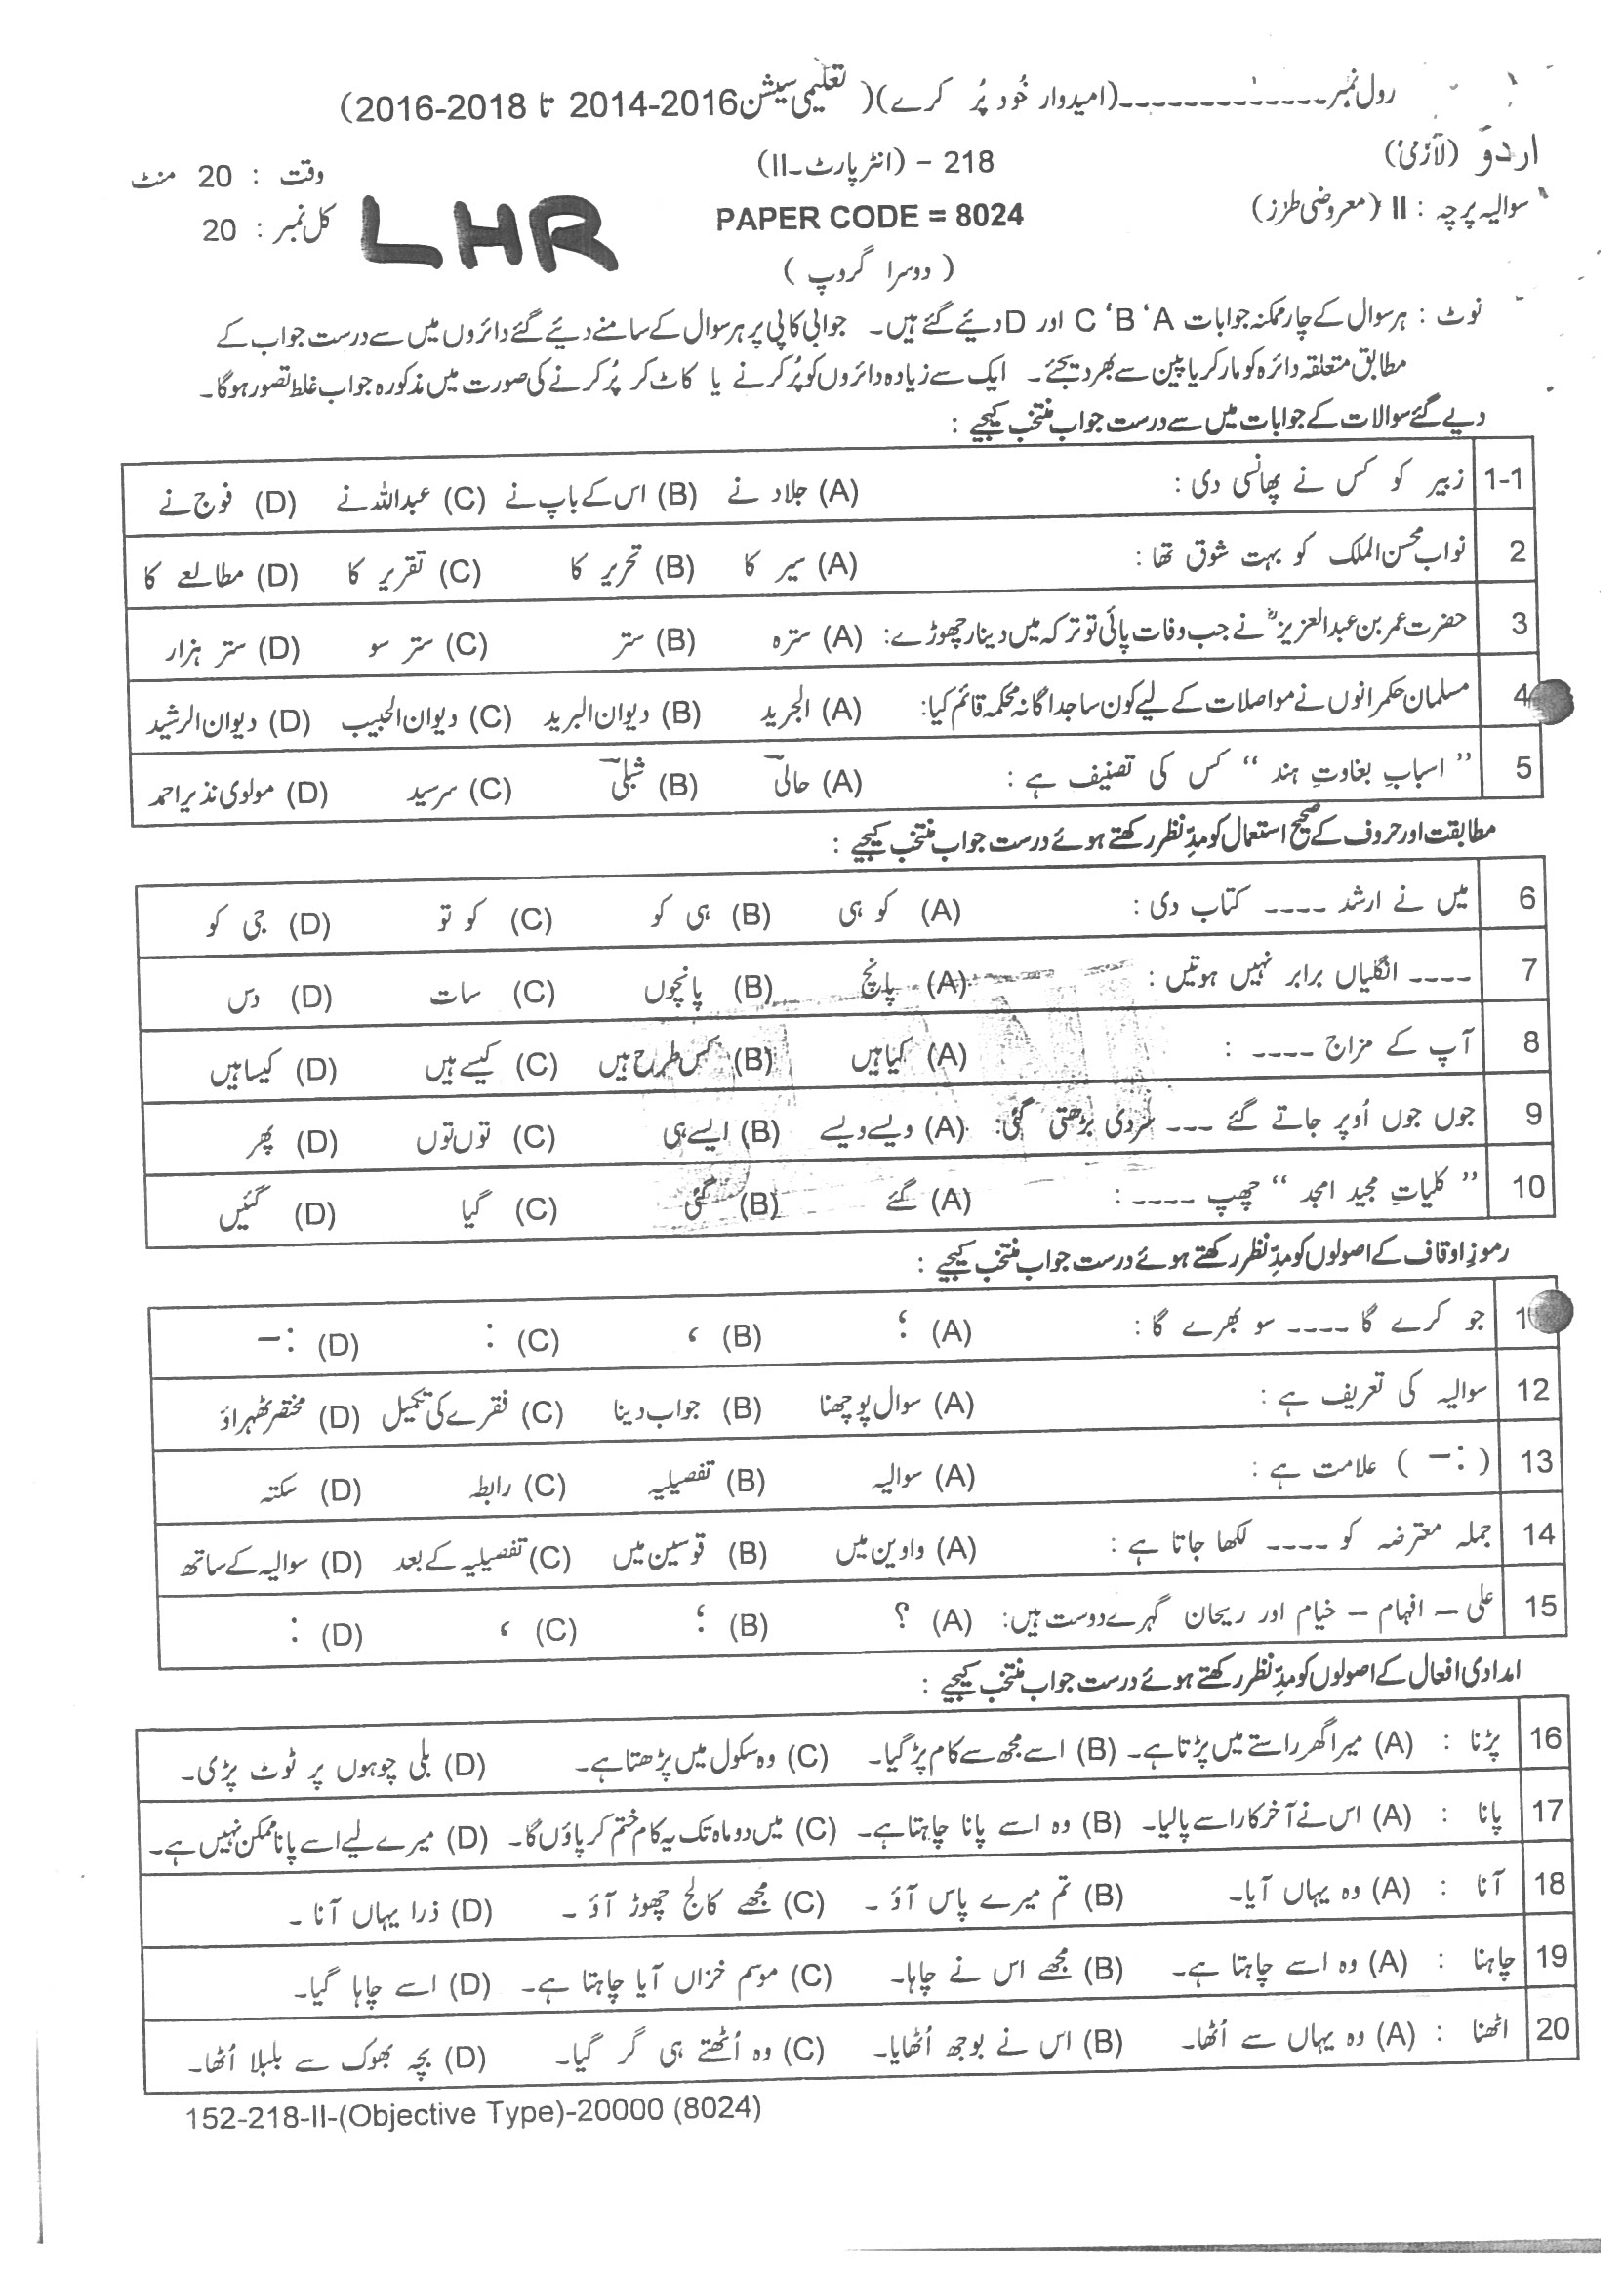 رول نمبر-------------(امیدوار خُود پُر کرے)( تعلیمی سیشن2016-2014 تا 2018-2016)
اردو (لازمی)
218 - (انٹرپارٹ-II)
وقت : 20 منٹ
سوالیہ پرچہ : II (معروضی طرز)
PAPER CODE = 8024
LHR
کل نمبر : 20
( دوسرا گروپ )
نوٹ : ہر سوال کے چار ممکنہ جوابات C ‘B ‘A اور D دیئے گئے ہیں۔ جوابی کاپی پر ہر سوال کے سامنے دیئے گئے دائروں میں سے درست جواب کے
مطابق متعلقہ دائرہ کو مارکر یا پین سے بھر دیجئے۔ ایک سے زیادہ دائروں کو پُر کرنے یا کاٹ کر پُر کرنے کی صورت میں مذکورہ جواب غلط تصور ہوگا۔
دیے گئے سوالات کے جوابات میں سے درست جواب منتخب کیجیے :
1-1 زبیر کو کس نے پھانسی دی : (A) جلاد نے (B) اس کے باپ نے (C) عبداللہ نے (D) فوج نے
2 نواب محسن الملک کو بہت شوق تھا : (A) سیر کا (B) تحریر کا (C) تقریر کا (D) مطالعے کا
3 حضرت عمر بن عبدالعزیزؒ نے جب وفات پائی تو ترکہ میں دینار چھوڑے: (A) سترہ (B) ستر (C) ستر سو (D) ستر ہزار
4 مسلمان حکمرانوں نے مواصلات کے لیے کون سا جداگانہ محکمہ قائم کیا: (A) الجرید (B) دیوان البرید (C) دیوان الحبیب (D) دیوان الرشید
5 ’’ اسبابِ بغاوتِ ہند ‘‘ کس کی تصنیف ہے : (A) حالیؔ (B) شبلیؔ (C) سرسید (D) مولوی نذیر احمد
مطابقت اور حروف کے صحیح استعمال کو مدِّ نظر رکھتے ہوئے درست جواب منتخب کیجیے :
6 میں نے ارشد ---- کتاب دی : (A) کو ہی (B) ہی کو (C) کو تو (D) جی کو
7 ---- انگلیاں برابر نہیں ہوتیں : (A) پانچ (B) پانچوں (C) سات (D) دس
8 آپ کے مزاج ---- : (A) کیا ہیں (B) کس طرح ہیں (C) کیسے ہیں (D) کیسا ہیں
9 جوں جوں اُوپر جاتے گئے --- سردی بڑھتی گئی: (A) ویسے ویسے (B) ایسے ہی (C) توں توں (D) پھر
10 ’’ کلیاتِ مجید امجد ‘‘ چھپ ---- : (A) گئے (B) گئی (C) گیا (D) گئیں
رموزِ اوقاف کے اصولوں کو مدِّ نظر رکھتے ہوئے درست جواب منتخب کیجیے :
1 جو کرے گا ---- سو بھرے گا : (A) ؛ (B) ، (C) : (D) :-
12 سوالیہ کی تعریف ہے : (A) سوال پوچھنا (B) جواب دینا (C) فقرے کی تکمیل (D) مختصر ٹھہراؤ
13 ( :- ) علامت ہے : (A) سوالیہ (B) تفصیلیہ (C) رابطہ (D) سکتہ
14 جملہ معترضہ کو ---- لکھا جاتا ہے : (A) واوین میں (B) قوسین میں (C) تفصیلیہ کے بعد (D) سوالیہ کے ساتھ
15 علی - افہام - خیام اور ریحان گہرے دوست ہیں: (A) ؟ (B) ؛ (C) ، (D) :
امدادی افعال کے اصولوں کو مدِّ نظر رکھتے ہوئے درست جواب منتخب کیجیے :
16 پڑنا : (A) میرا گھر راستے میں پڑتا ہے۔ (B) اسے مجھ سے کام پڑ گیا۔ (C) وہ سکول میں پڑھتا ہے۔ (D) بلی چوہوں پر ٹوٹ پڑی۔
17 پانا : (A) اس نے آخر کار اسے پالیا۔ (B) وہ اسے پانا چاہتا ہے۔ (C) میں دو ماہ تک یہ کام ختم کر پاؤں گا۔ (D) میرے لیے اسے پانا ممکن نہیں ہے۔
18 آنا : (A) وہ یہاں آیا۔ (B) تم میرے پاس آؤ ۔ (C) مجھے کالج چھوڑ آؤ ۔ (D) ذرا یہاں آنا ۔
19 چاہنا : (A) وہ اسے چاہتا ہے۔ (B) مجھے اس نے چاہا۔ (C) موسم خزاں آیا چاہتا ہے۔ (D) اسے چاہا گیا۔
20 اٹھنا : (A) وہ یہاں سے اُٹھا۔ (B) اس نے بوجھ اُٹھایا۔ (C) وہ اُٹھتے ہی گر گیا۔ (D) بچہ بھوک سے بلبلا اُٹھا۔
152-218-II-(Objective Type)-20000 (8024)